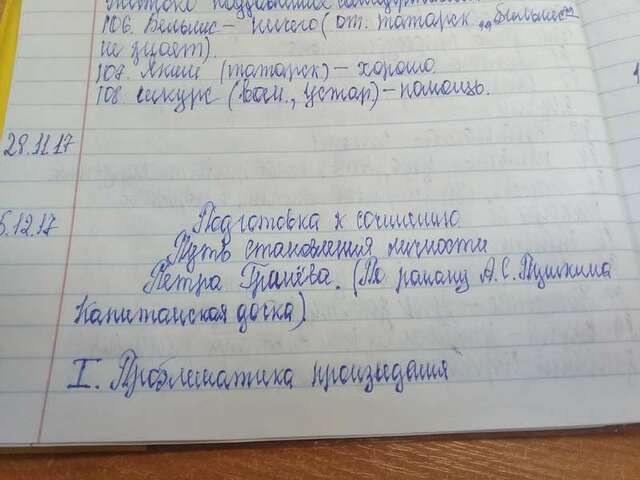 106. Бельмес – ничего (от. татарск. „бельмес"
не знает).
107. Якши (татарск) – хорошо.
108. сикурс (воен., устар) – помощь.
28.11.17
5.12.17
Подготовка к сочинению
Путь становления личности
Петра Гринёва. (По роману А.С. Пушкина
Капитанская дочка)
I. Проблематика произведения